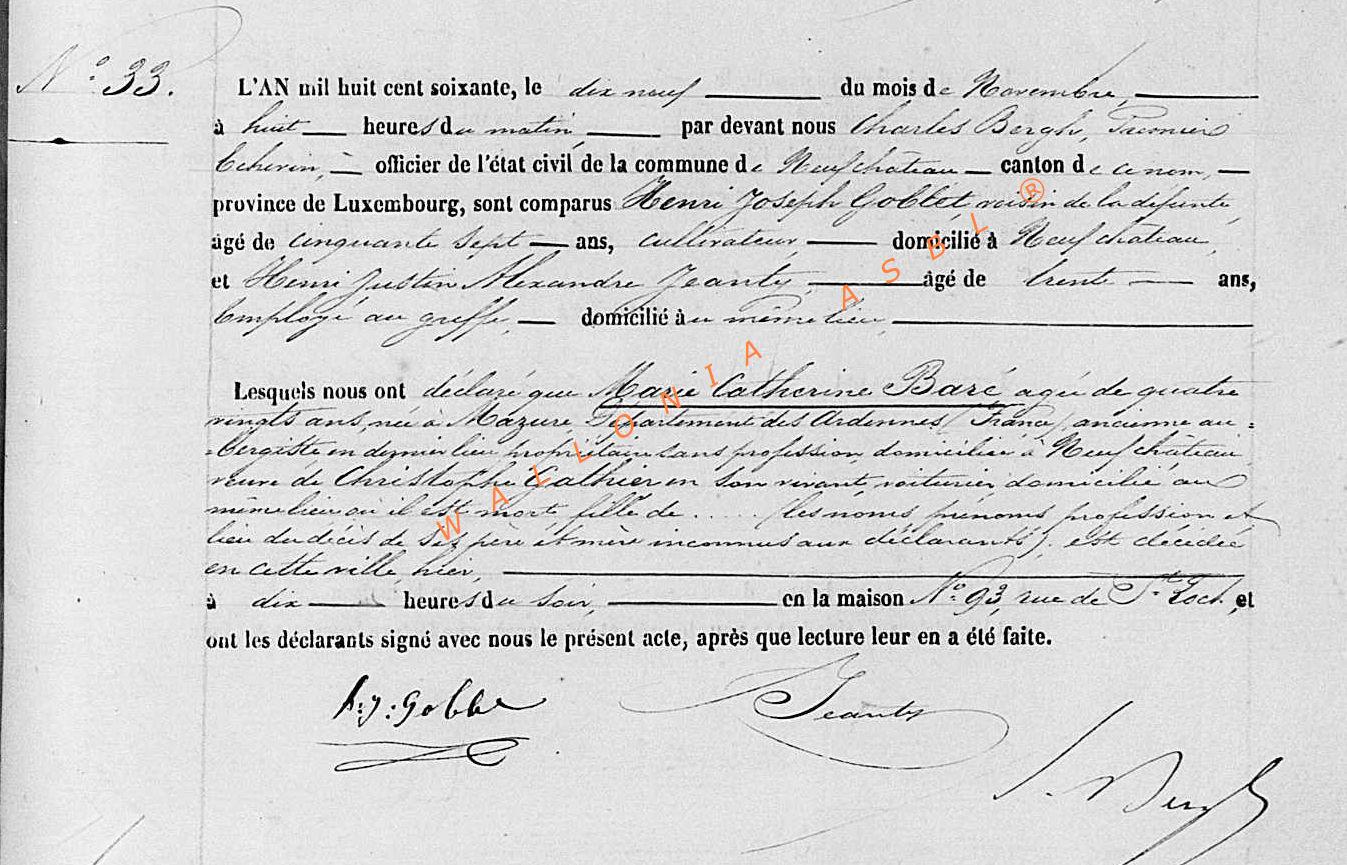 N.° 33.
L'AN mil huit cent soixante, le dix neuf du mois de Novembre,
à huit heures du matin, par devant nous Charles Bergh, Premier
Echevin, officier de l'état civil de la commune de Neufchâteau canton de ce nom,
province de Luxembourg, sont comparus Henri Joseph Goblet, voisin de la défunte,
âgé de cinquante sept ans, cultivateur, domicilié à Neufchâteau,
et Henri Justin Alexandre Jeanty, âgé de trente ans,
Employé au greffe, domicilié au même lieu,
Lesquels nous ont déclaré que Marie Catherine Baré, agée de quatre
vingts ans, née à Mazure, Département des Ardennes (France), ancienne au=
=bergiste en dernier lieu propriétaire sans profession, domiciliée à Neufchâteau,
veuve de Christophe Gathier en son vivant, voiturier domicilié au
même lieu où il est mort, fille de .... (les noms, prénoms, profession et
lieu du décès de ses père et mère inconnus aux déclarants), est décédée
en cette ville, hier,
à dix heures du soir, en la maison N.° 93, rue de St Roch, et
ont les déclarants signé avec nous le présent acte, après que lecture leur en a été faite.
h: j: Gobbe Jeanty
Bergh
WALLONIA ASBL ®